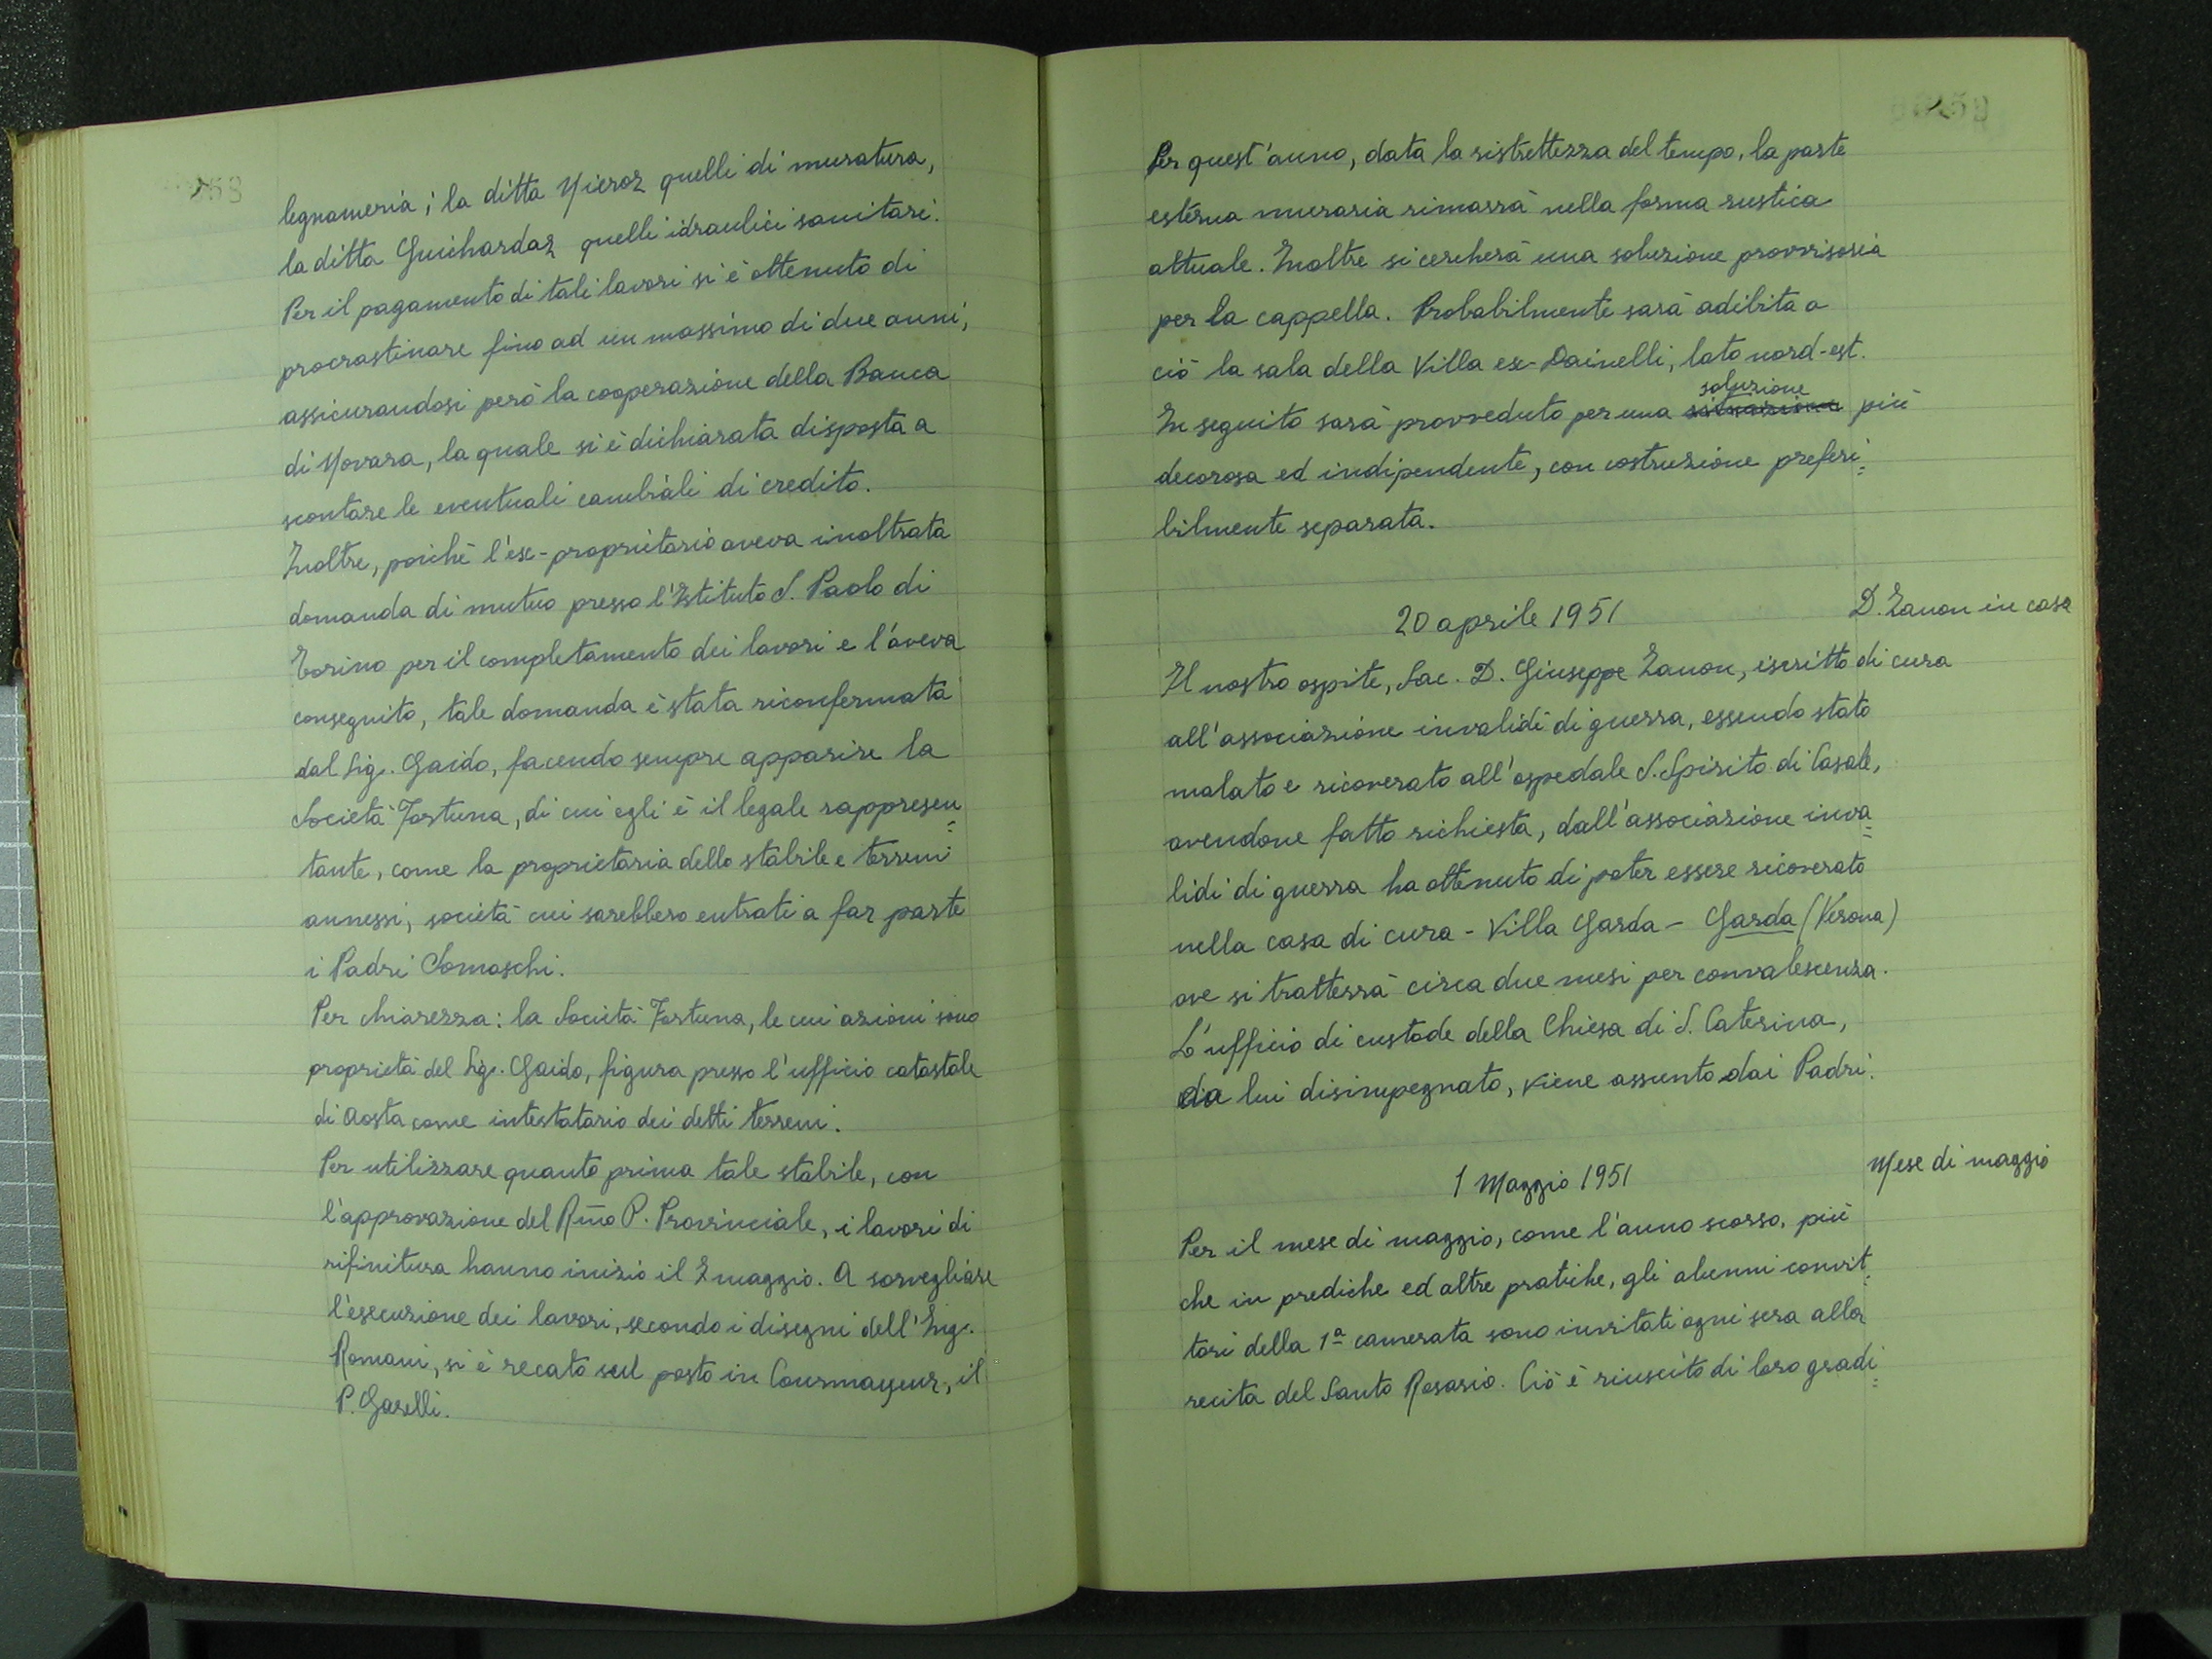 258
legnameria; la ditta Nieroz quelli di muratura,
la ditta Guichardaz quelli idraulici sanitari.
Per il pagamento di tali lavori si è ottenuto di
procrastinare fino ad un massimo di due anni,
assicurandosi però la cooperazione della Banca
di Novara, la quale si è dichiarata disposta a
scontare le eventuali cambiali di credito.
Inoltre, poichè l'ex-proprietario aveva inoltrata
domanda di mutuo presso l'Istituto S. Paolo di
Torino per il completamento dei lavori e l'aveva
conseguito, tale domanda è stata riconfermata
dal Sig. Gaido, facendo sempre apparire la
Società Fortuna, di cui egli è il legale rappresen=
tante, come la proprietaria dello stabile e terreni
annessi, società cui sarebbero entrati a far parte
i Padri Somaschi.
Per chiarezza: la Società Fortuna, le cui azioni sono
proprietà del Sig. Gaido, figura presso l'ufficio catastale
di Aosta come intestatario dei detti terreni.
Per utilizzare quanto prima tale stabile, con
l'approvazione del Rmo P. Provinciale, i lavori di
rifinitura hanno inizio il 2 maggio. A sorvegliare
l'esecuzione dei lavori, secondo i disegni dell'Ing.
Romani, si è recato sul posto in Courmayeur, il
P. Garelli.
259
Per quest'anno, data la ristrettezza del tempo, la parte
esterna muraria rimarrà nella forma rustica
attuale. Inoltre si cercherà una soluzione provvisoria
per la cappella. Probabilmente sarà adibita a
ciò la sala della Villa ex-Dainelli, lato nord-est.
soluzione
In seguito sarà provveduto per una situazione più
decorosa ed indipendente, con costruzione preferi=
bilmente separata.
20 aprile 1951
D. Zanon in casa
di cura
Il nostro ospite, Sac. D. Giuseppe Zanon, iscritto
all'associazione invalidi di guerra, essendo stato
malato e ricoverato all'ospedale S. Spirito di Casale,
avendone fatto richiesta, dall'associazione inva=
lidi di guerra ha ottenuto di poter essere ricoverato
nella casa di cura - Villa Garda - Garda (Verona)
ove si tratterrà circa due mesi per convalescenza.
L'ufficio di custode della Chiesa di S. Caterina,
da lui disimpegnato, viene assunto dai Padri.
1 Maggio 1951
Mese di maggio
Per il mese di maggio, come l'anno scorso, più
che in prediche ed altre pratiche, gli alunni convit=
tori della 1ª camerata sono invitati ogni sera alla
recita del Santo Rosario. Ciò è riuscito di loro gradi=